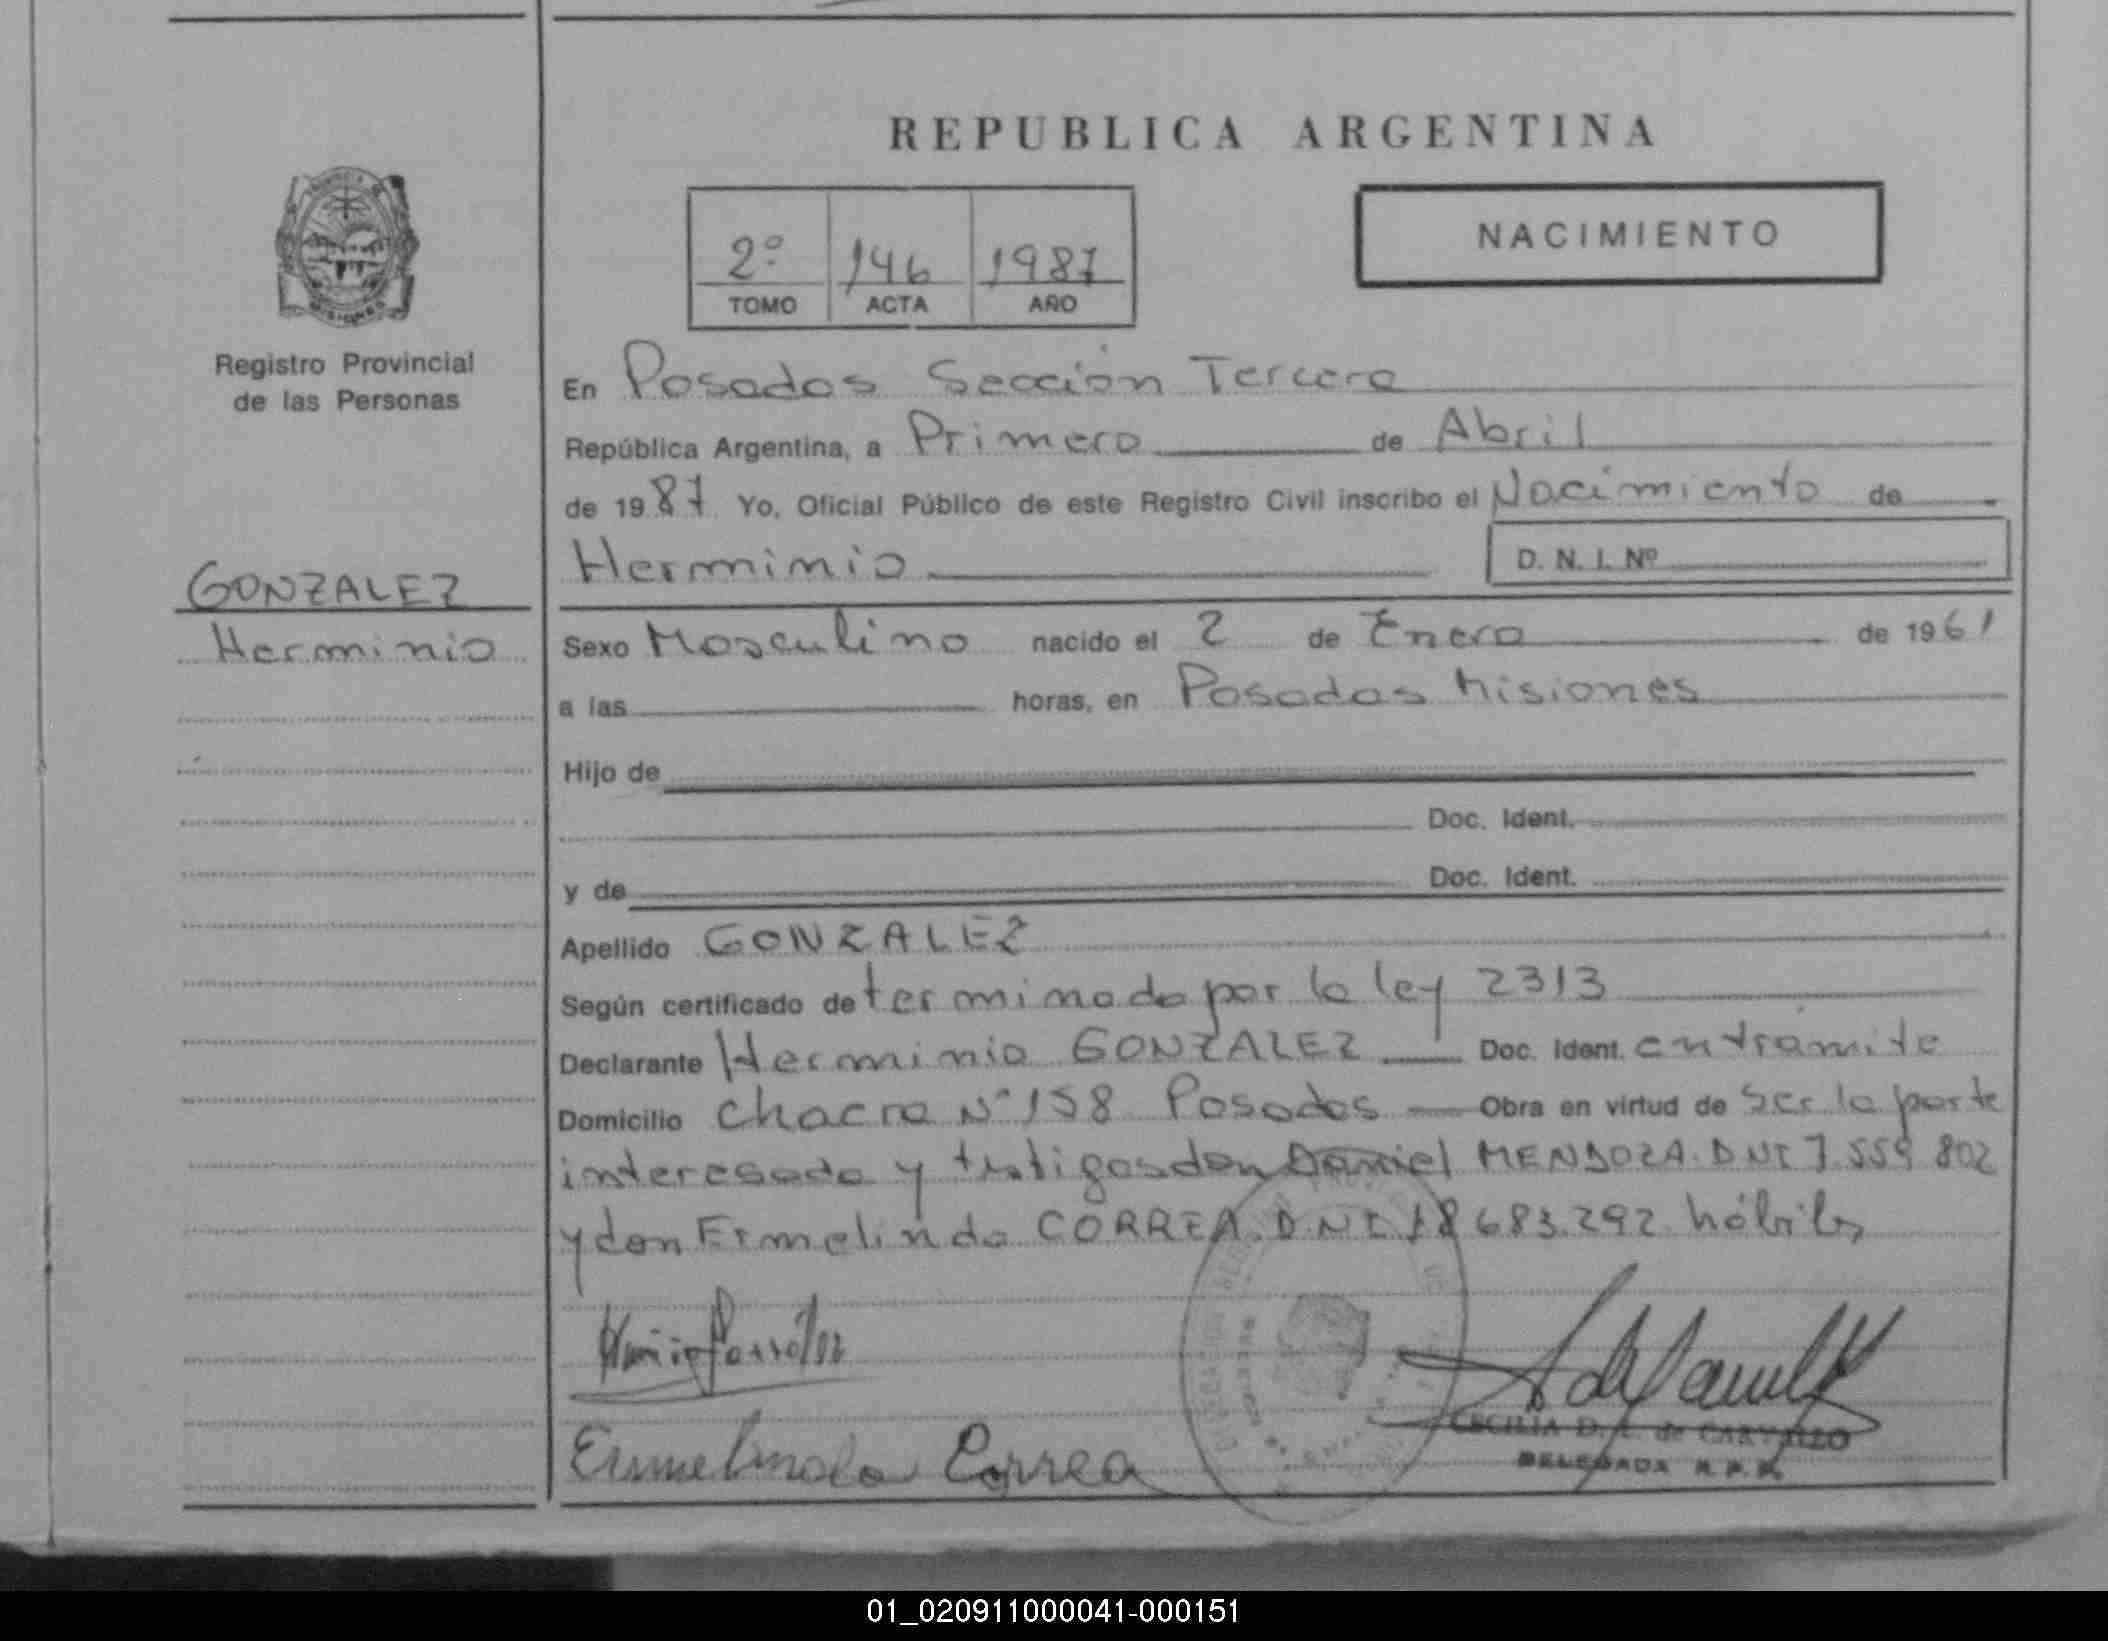 REPUBLICA ARGENTINA
2º 146 1987
TOMO ACTA AÑO
NACIMIENTO
Registro Provincial
de las Personas
En Posadas Sección Tercera
República Argentina, a Primero de Abril
de 1987 Yo, Oficial Público de este Registro Civil inscribo el Nacimiento de
Herminio D. N. I. Nº
GONZALEZ
Herminio
Sexo Masculino nacido el 2 de Enero de 1961
a las horas, en Posadas Misiones
Hijo de
Doc. Ident.
y de Doc. Ident.
Apellido GONZALEZ
Según certificado determinada por la ley 2313
Declarante Herminio GONZALEZ Doc. Ident. en trámite
Domicilio chacra Nº 158 Posadas Obra en virtud de ser la parte
interesada y testigos don Daniel MENDOZA DNI 7.559.802
y don Ermelinda CORREA DNI 18.683.292 hábiles
Ermelinda Correa
CECILIA D. de CARVALLO
DELEGADA R.P.P.
01_020911000041-000151